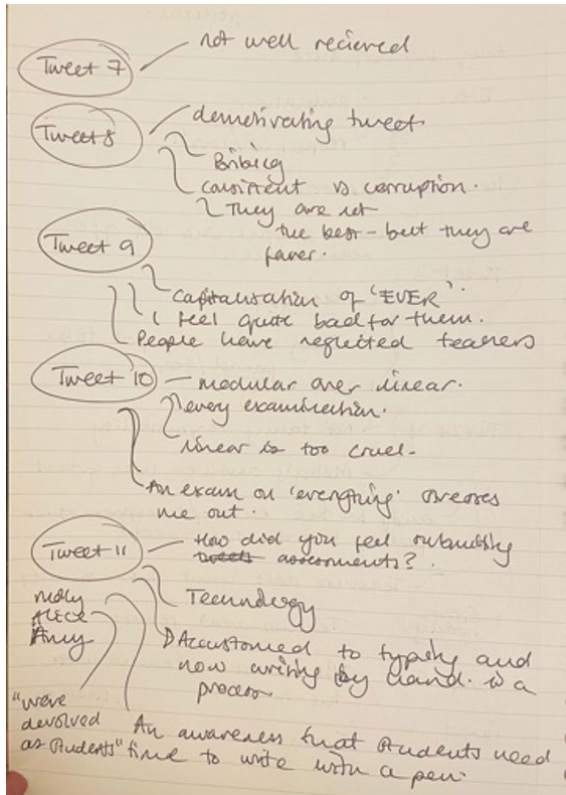 Tweet 7
not well recieved
Tweet 8
demotivating tweet
Bribing
Consistent vs corruption.
They are not
the best - but they are
fairer.
Tweet 9
Capitalisation of 'EVER'.
I feel quite bad for them.
People have neglected teachers
Tweet 10
modular over linear.
every examination.
linear is too cruel.
An exam on 'everything' stresses
me out.
Tweet 11
How did you feel submitting
tweets assessments?
Technology
Accustomed to typing and
now writing by hand is a
process
Molly
Alice
Amy
"we're
devolved
as students"
An awareness that students need
time to write with a pen.